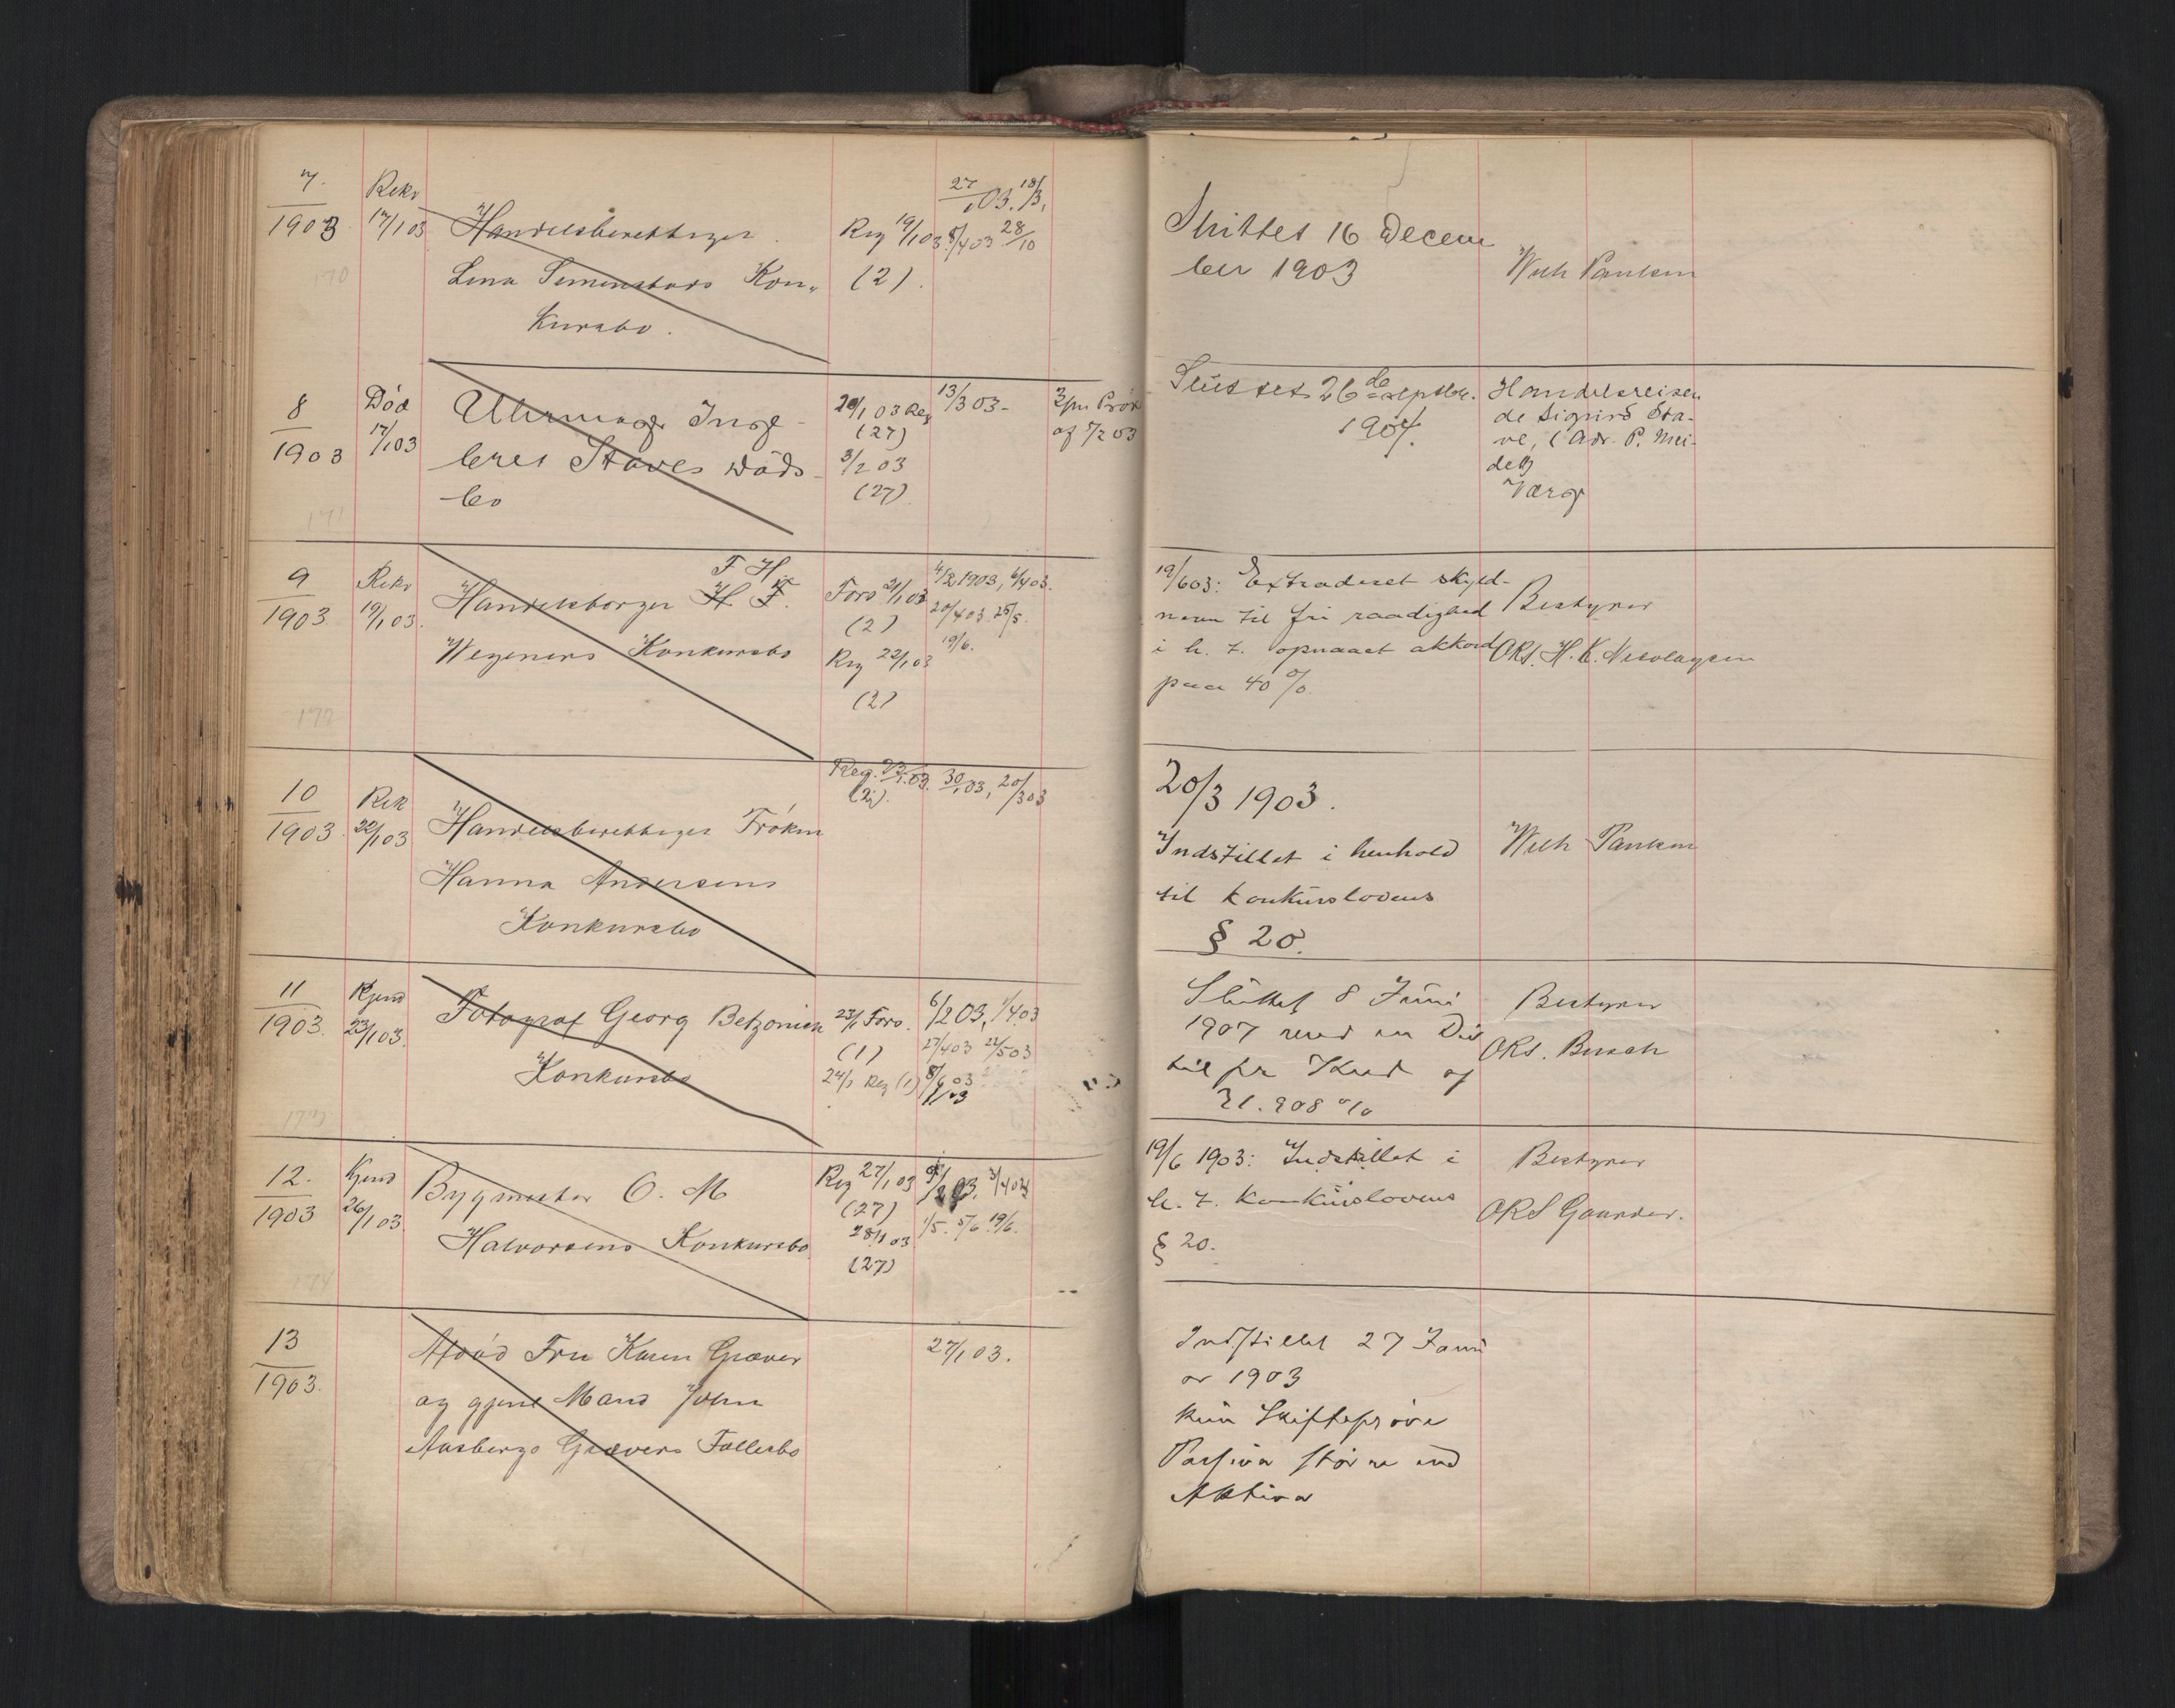 7.
1903
Rekv
17/1 03
Handelsberettiget
Lina Simenstads Kon-
kursbo.
Reg 19/1 03
(2).
27/1 03. 18/3,
8/4 03 28/10
Sluttet 16 Decem
ber 1903
Wilh Paulsen
170
8
1903
Død
17/1 03
Uhrmager Inge-
bret Staves Døds-
bo
20/1 03 Reg
(27)
3/2 03
(27)
13/3 03-
af 5/2 03
Sluttet 26de septbr.
1904.
Handelsreisen
de Sigurd Sta-
ve, (Adr. P.
Værge
171
9
1903
Rekv
19/1 03.
F H
Handelsborger H F.
Wegeners Konkursbo
Fors 21/1 03
(2)
Reg 22/1 03
(2)
4/2 1903, 6/4 03.
20/4 03. 25/5.
19/6.
19/6 03: Extraderet skyld-
neren til fri raadighed
i h. t. opnaaet akkord
paa 40 %.
Bestyrer
ORS. H. K. Nicolaysen
172
10
1903
Rek
22/1 03
Handelsberettiget Frøken
Hanna Andersens
Konkursbo
Reg. 23/1 03. 30/1 03, 20/3 03
20/3 1903.
Indstillet i henhold
til konkurslovens
§ 20.
Wilh Paulsen
11
1903.
Kjend
23/1 03.
Fotograf Georg Betzonich
Konkursbo
23/1 Fors.
(1)
24/1 Reg (1)
6/2 03, 1/4 03
27/4 03 22/5 03
8/6 03
Sluttet 8 Juni
1907 med en Div
til pr Kred af
21.908 %
Bestyrer
ORS. Busch
12.
1903
Kjend
26/1 03
Bygmester O. M
Halvorsens Konkursbo
Reg 27/1 03
(27)
28/1 03
(27)
1/5. 5/6 19/6.
19/6 1903: Indstillet i
h. t. konkurslovens
§ 20.
Bestyrer
ORS Gaarder.
174
13
1903.
Afdød Fru Karen Græver
og gjenl Mand John
Aasbergs Grævers Fællesbo
27/1 03.
Indstillet 27 Janu
ar 1903
kun Skifteprøve
Passiva større end
Aktiva